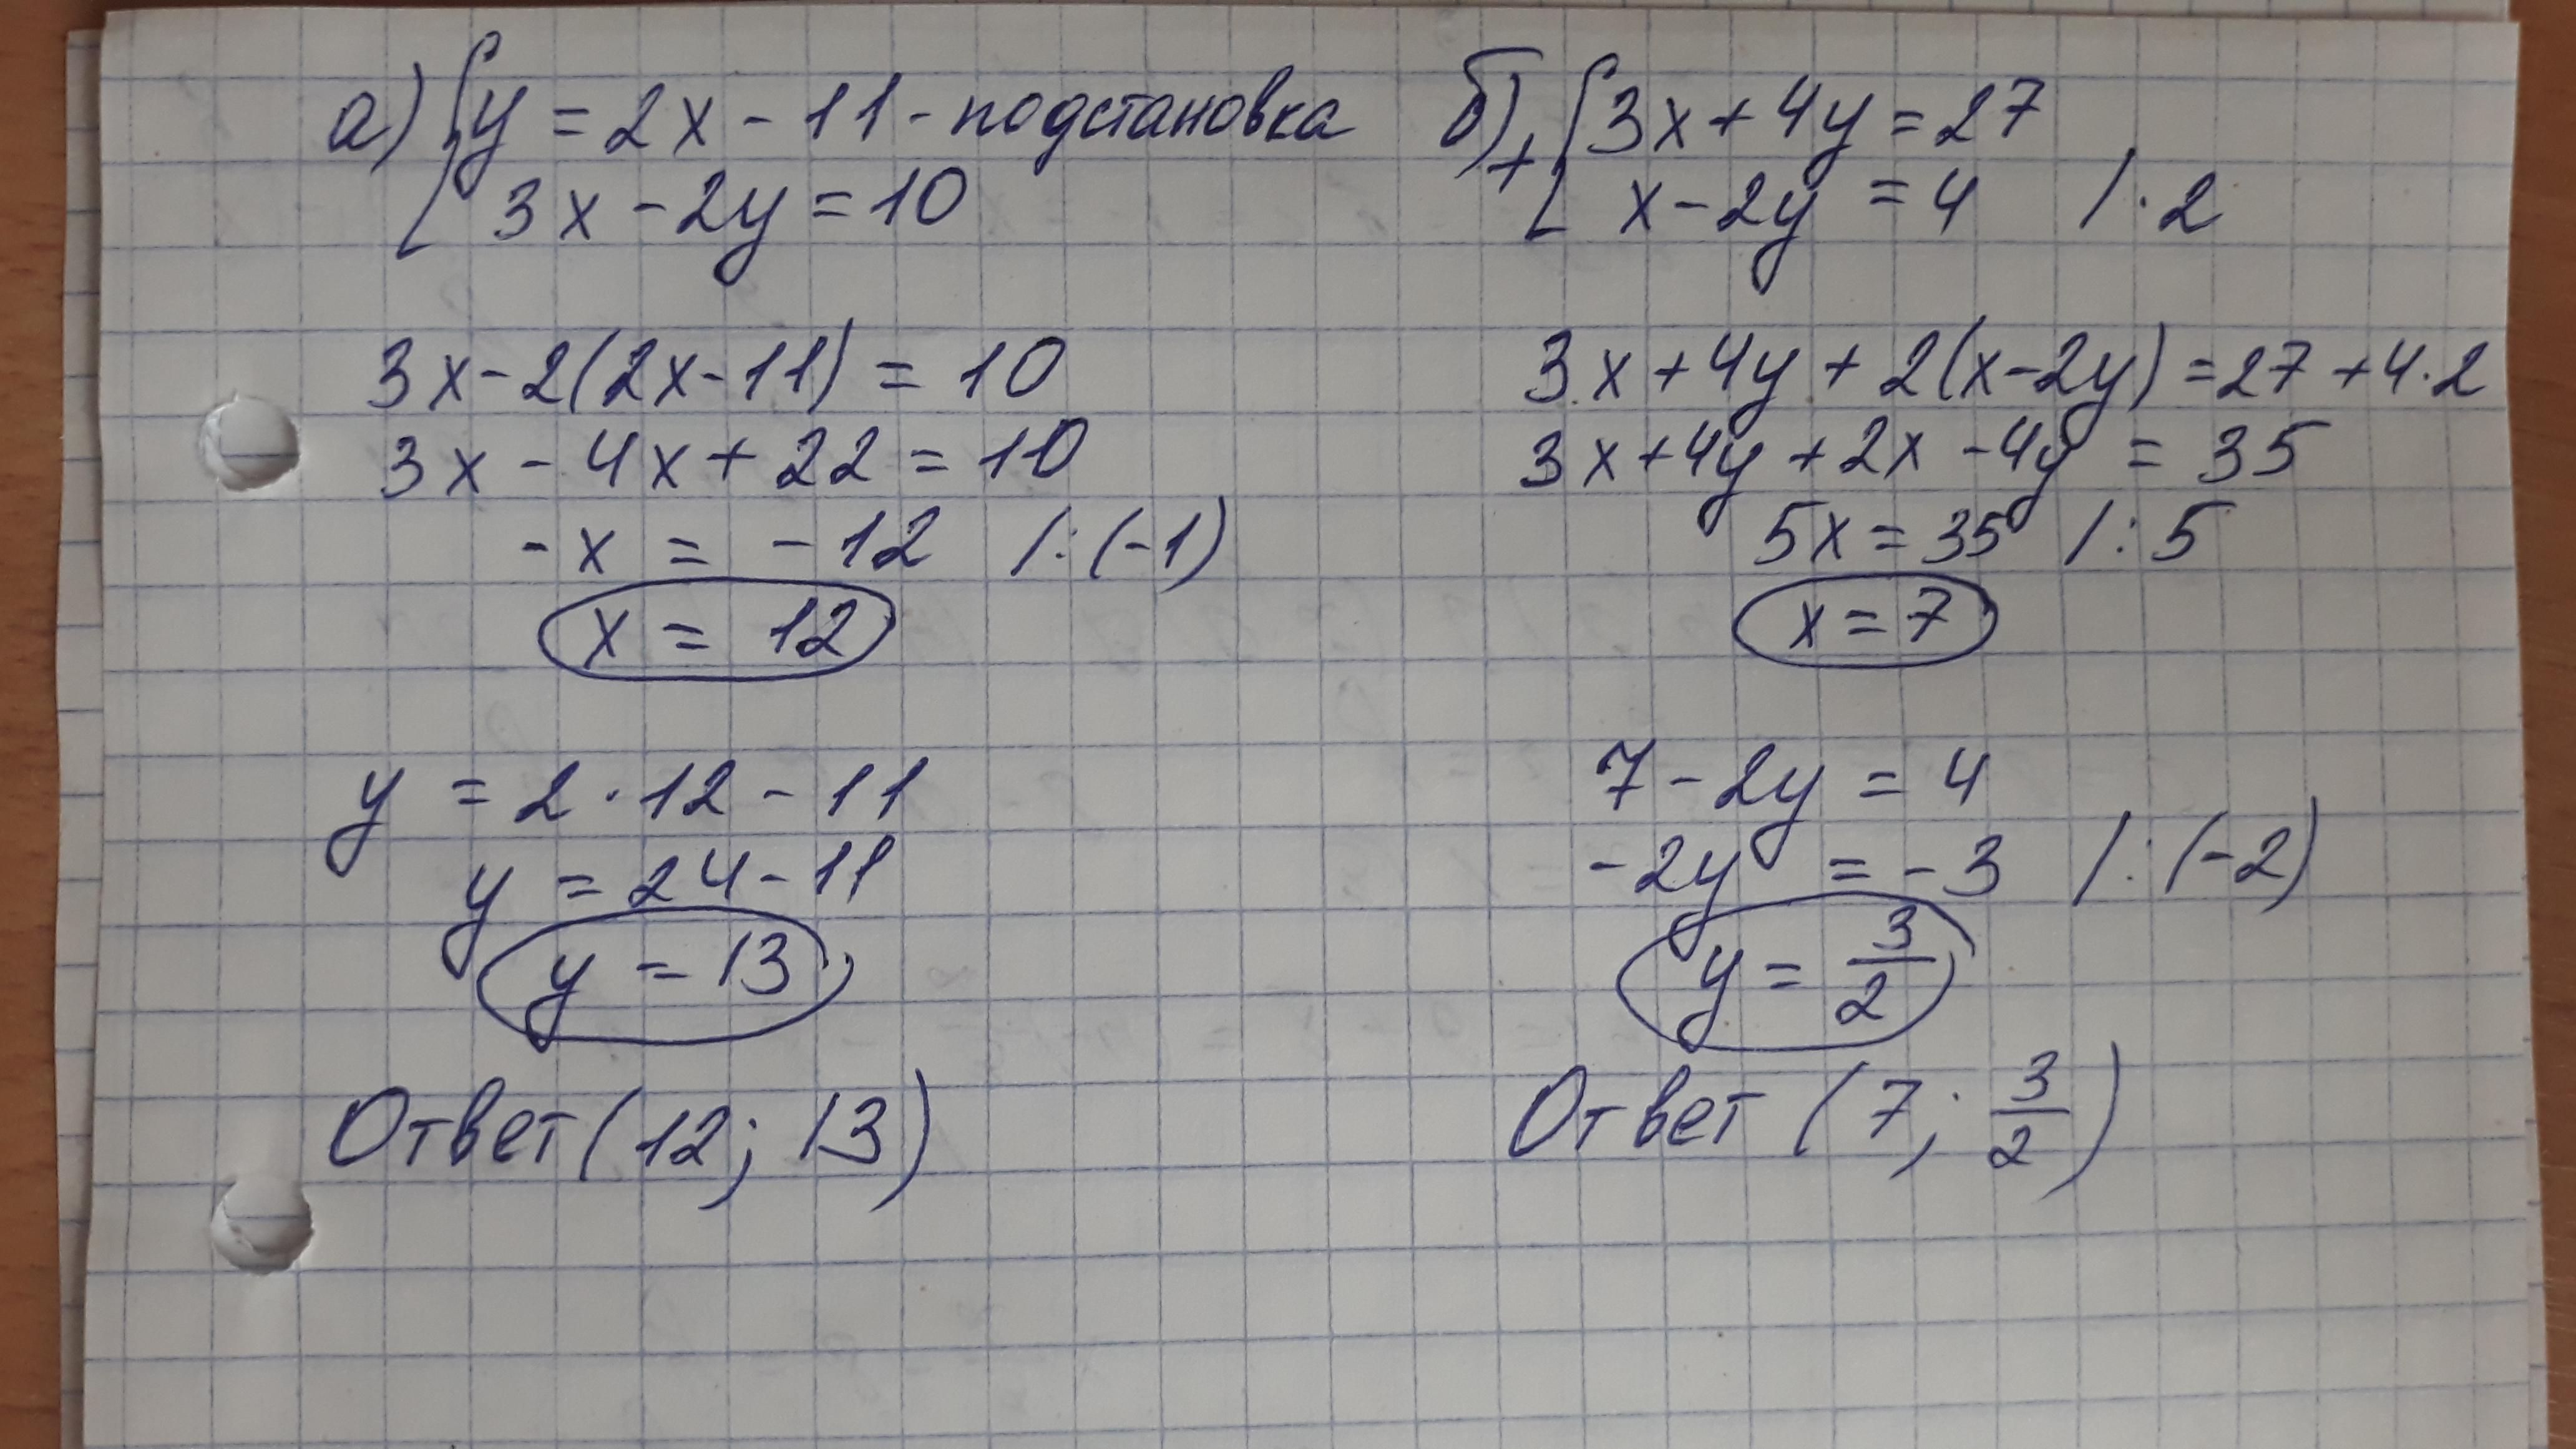 а) { y = 2x - 11 - подстановка
3x - 2y = 10
3x - 2(2x - 11) = 10
3x - 4x + 22 = 10
-x = -12 /:(-1)
x = 12
y = 2 · 12 - 11
y = 24 - 11
y = 13
Ответ (12; 13)
б) + { 3x + 4y = 27
x - 2y = 4 /· 2
3x + 4y + 2(x - 2y) = 27 + 4 · 2
3x + 4y + 2x - 4y = 35
5x = 35 /: 5
x = 7
7 - 2y = 4
-2y = -3 /: (-2)
y = 3/2
Ответ (7; 3/2)